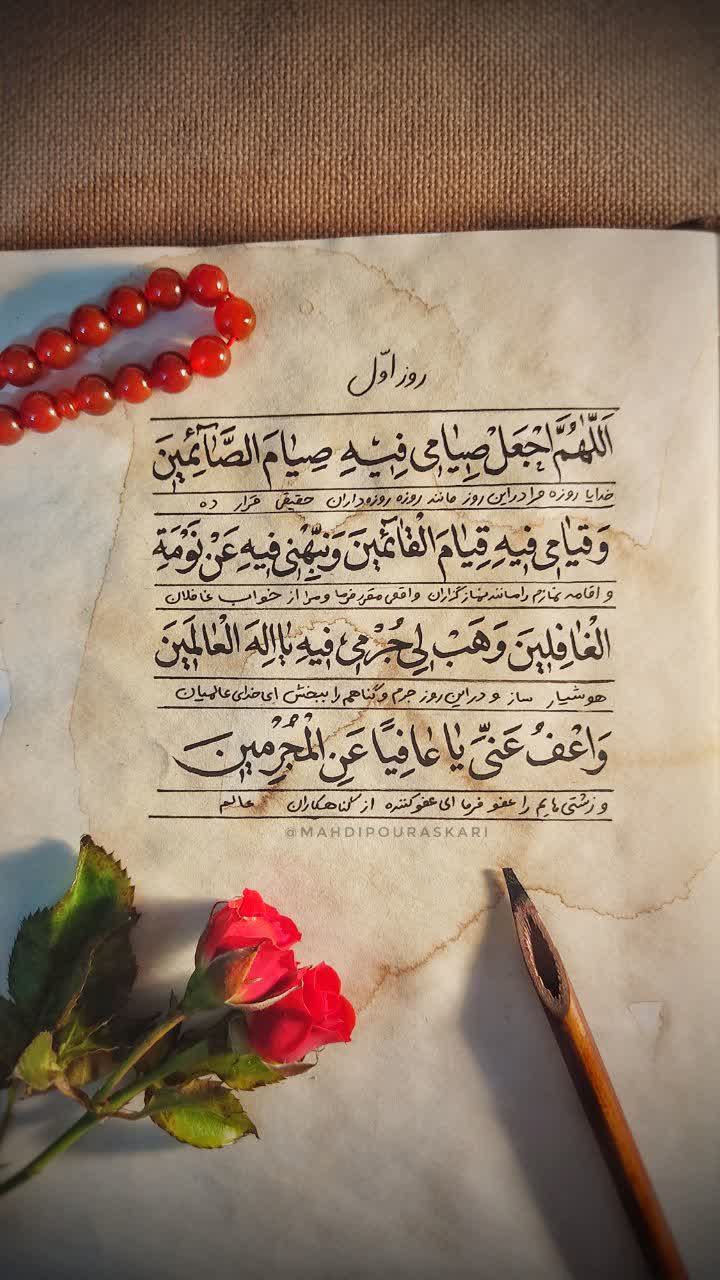 روز اوّل
اَللّٰهُمَّ اجْعَلْ صِيٰامى فِيهِ صِيٰامَ الصّٰآئِمينَ
خدایا روزه مرا در این روز مانند روزه روزه‌داران حقیقی قرار ده
وَقيٰامى فيهِ قِيٰامَ الْقٰآئمينَ وَنَبِّهْنى فيهِ عَنْ نَوْمَةِ
و اقامه نمازم را مانند نمازگزاران واقعی مقرر فرما و مرا از خواب غافلان
الْغٰافِلينَ وَهَبْ لِى جُرْمى فيهِ يٰا اِلٰهَ الْعٰالَمينَ
هوشیار ساز و در این روز جرم و گناهم را ببخش ای خدای عالمیان
وَاعْفُ عَنىِّ يٰا عٰافِيًا عَنِ الْمُجْرِمينَ
و زشتی هایم را عفو فرما ای عفو کننده از گناهکاران عالم
@MAHDIPOURASKARI